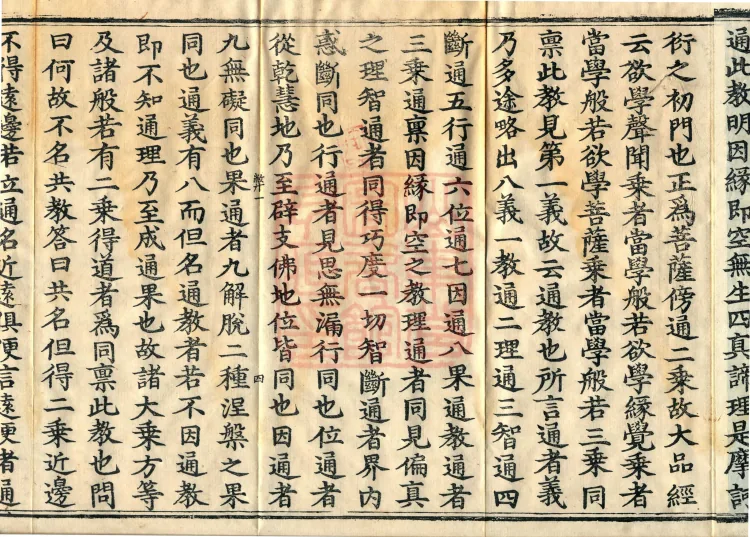 通此教明因緣即空無生四真諦理是摩訶
衍之初門也正為菩薩傍通二乘故大品經
云欲學聲聞乘者當學般若欲學緣覺乘者
當學般若欲學菩薩乘者當學般若三乘同
稟此教見第一義故云通教也所言通者義
乃多途略出八義一教通二理通三智通四
斷通五行通六位通七因通八果通教通者
三乘通稟因緣即空之教理通者同見偏真
之理智通者同得巧度一切智斷通者界內
惑斷同也行通者見思無漏行同也位通者
從乾慧地乃至辟支佛地位皆同也因通者
九無礙同也果通者九解脫二種涅槃之果
同也通義有八而但名通教者若不因通教
即不知通理乃至成通果也故諸大乘方等
及諸般若有二乘得道者為同稟此教也問
曰何故不名共教答曰共名但得二乘近邊
不得遠邊若立通名近遠俱便言遠便者通
四